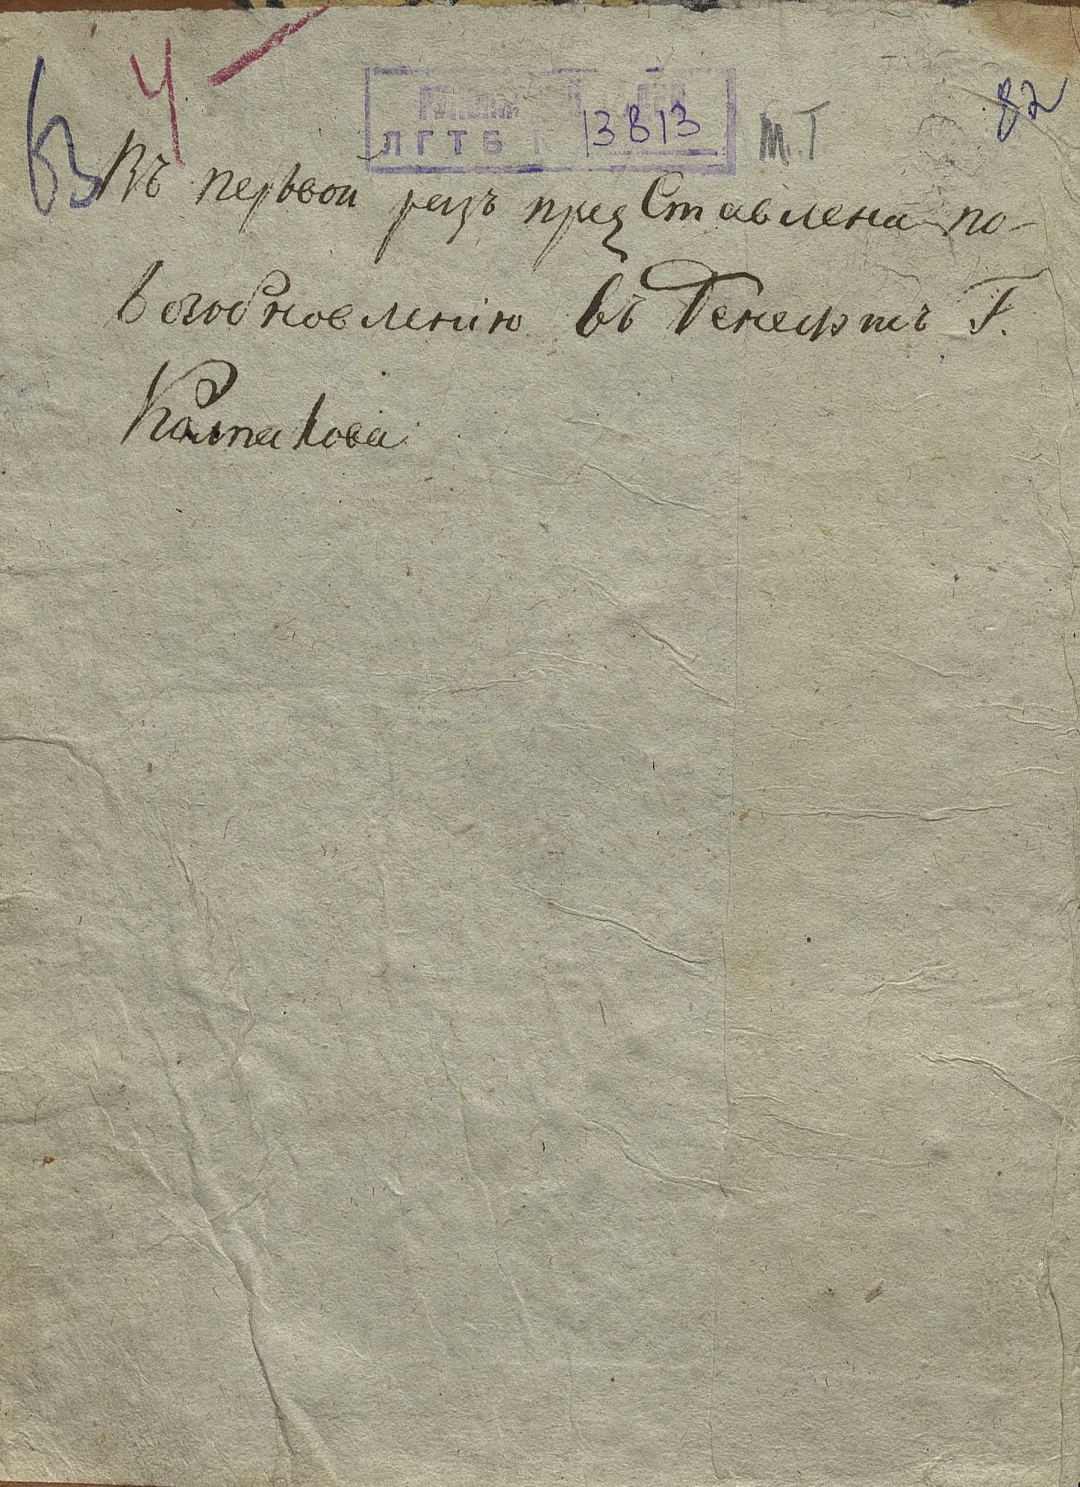 4
82
ЛГТБ
13813
М.Т
63
Въ первой разъ представлена по-
возобновленію въ Бенефитъ Г.
Колпакова